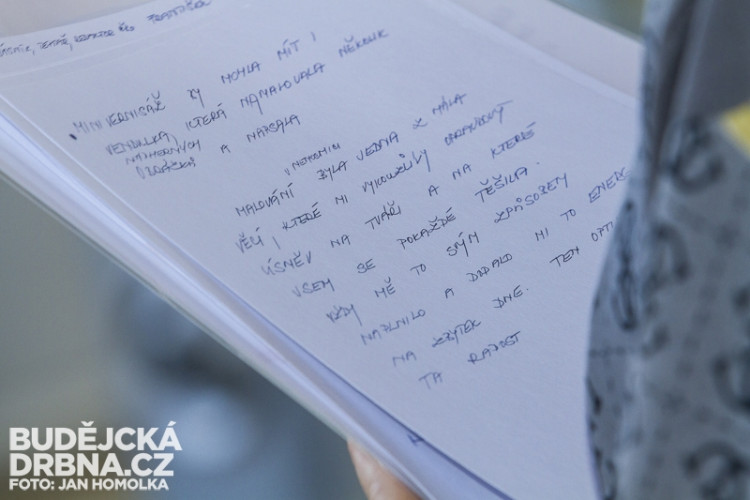 FRANTIŠEK
MINI VERNISÁŽ BY MOHLA MÍT I
VENDULKA, KTERÁ NAMALOVALA NĚKOLIK
NÁDHERNÝCH
OBRÁZKŮ A NAPSALA
V NEMOCNICI
MALOVÁNÍ BYLA JEDNA Z MÁLA
VĚCÍ, KTERÉ MI VYKOUZLILY OPRAVDOVÝ
ÚSMĚV NA TVÁŘI A NA KTERÉ
JSEM SE POKAŽDÉ TĚŠILA.
VŽDY MĚ TO SVÝM ZPŮSOBEM
NAPLNILO A DODALO MI TO ENERG
NA ZBYTEK DNE. TEN OPTI
TA RADOST
BUDĚJCKÁ
DRBNA.CZ
FOTO: JAN HOMOLKA